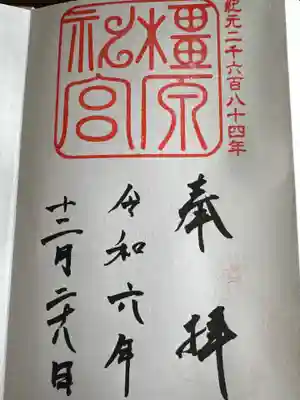 紀元二千六百八十四年
奉拝
橿原
神宮
令和六年
十二月二十八日